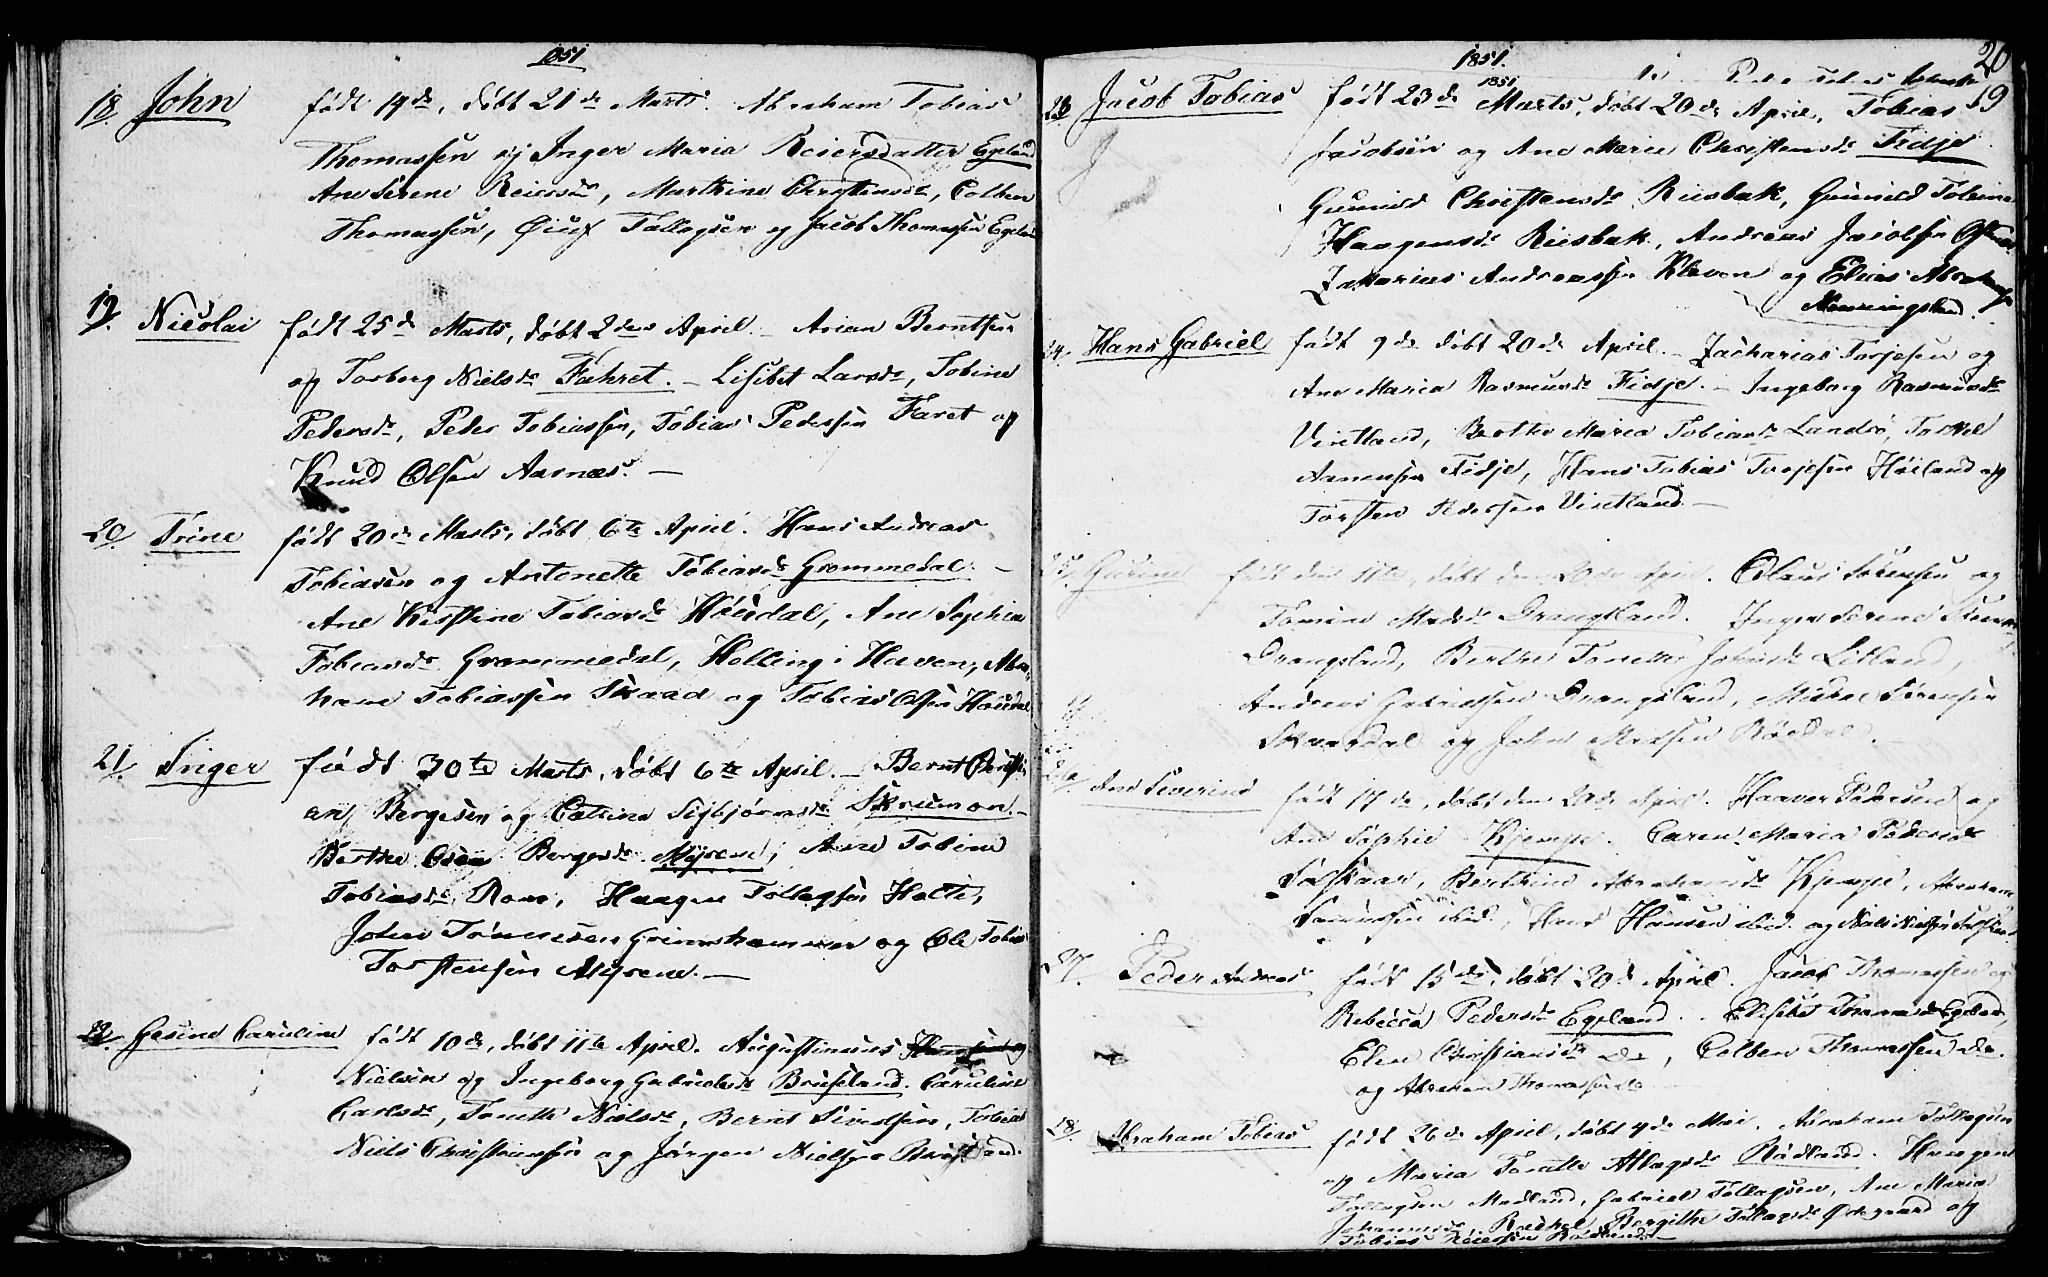 1851
18. John født 19de, døbt 21de Marts. Abraham Tobias
Thomassen og Inger Maria Reiersdatter Egeland
Ane Serene Reiersd., Marthine Christensd., Colben
Thomassen, Tallagsen og Jacob Thomassen Egeland
19. Nicolai født 25de Marts, døbt 2den April. – Arian Berntsen
og Torborg Nielsd. Fahret. – Lisibet Larsd., Tobine
Pedersd., Peder Tobiassen, Tobias Pedersen Faret og
Knud Olsen Aasnæs. –
20. Trine født 20de Marts, døbt 6te April. Hans Andreas
Tobiasen og Antonette Tobiasd. Grommedal. –
Ane Kirstine Tobiasd. Høiedal, Ane Sophie
Tobiasd. Grommedal, Helling i Haven, Abra-
ham Tobiassen Skaar og Tobias Olsen Høiedal
21. Inger født 30te Marts, døbt 6te April. – Bernt Christi-
an Bergesen og Catrine Sigbjørnsd. Skrumon. –
Berthe Bergesd. Myrene, Ane Tobine
Tobiasd. Rom, Haagen Tollagsen Holte,
John Tønnesen Grimshammer og Ole Tobias
Torstensen Myrene. –
22. Gesine Caruline født 10de, døbt 11te April. Augustinuus
Nielsen og Ingeborg Gabrielsd. Bruseland. Caruline
Carlsd., Tonette Nielsd., Bernt Sivertsen, Tobias
Niels Christensen og Jørgen Nielsen Bruseland.
1851.
20
19
23. Jacob Tobias født 23de 1851 Marts, døbt 20de April, Tobias
Jacobsen og Ane Marie Christensd. Fidje.
Gunild Christensd. Riisbak, Gunild Tobine
Haagensd. Riisbak, Andreas Jacobsen
Zakarias Andreassen Kleven og Elias Abrahamsen
24. Hans Gabriel født 9de døbt 20de April. – Zacharias Torjesen og
Ane Maria Rasmusd. Fidje. – Ingeborg Rasmusd.
Vintland, Berthe Maria Tobiasd. Landrø, Torkel
Aanensen Fidje, Hans Tobias Torjesen Høiland og
Torsten Pedersen Vintland. –
25. Gurine født den 11te, døbt den 20de April. Olaus Sørensen og
Tomine Madsd. Drangsland. Inger Serene
Drangsland, Berthe Tonette Johnsd. Litland,
Andreas Gabrielsen Drangsland, Mikkel Sørensen
Skaardal og John Madsen Røedal.
26. Ane Severine født 17de, døbt den 20de April. Haaver Pedersen og
Ane Sophie Kjempe. Caren Maria Pedersd.
Berthine Abrahamsd. Kjempe, Abraham
ibid., Hans Hansen ibid. og Niels Nielsen
27. Peder Andreas født 15de, døbt 20de April. Jacob Thomassen og
Rebecca Pedersd. Egeland. Elisebet Thomasd. Egeland,
Elen Christiansd. do, Colben Thomassen do.
og Abraham Thomassen do
28. Abraham Tobias født 26de April, døbt 4de Mai. Abraham Tollagsen
og Maria Tonette Aslagsd. Rødland. Haagen
Tollagsen Medland, Gabriel Tollagsen, Ane Maria
Johannesd., Rachel Bergithe Tollagsd. Ødegaard og
Tobias Reiersen Rødland. –